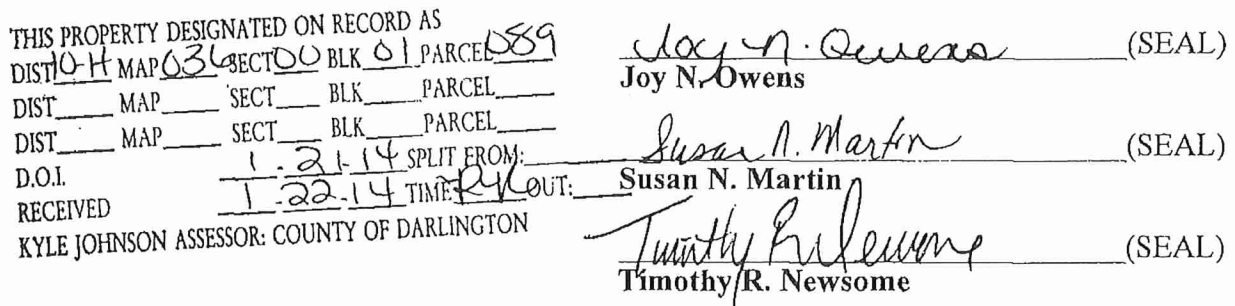 THIS PROPERTY DESIGNATED ON RECORD AS
DIST 10-H MAP 036 SECT 00 BLK 01 PARCEL 089
DIST____ MAP____ SECT____ BLK____ PARCEL____
DIST____ MAP____ SECT____ BLK____ PARCEL____
D.O.I. 1-21-14 SPLIT FROM:
RECEIVED 1-22-14 TIME OUT:
KYLE JOHNSON ASSESSOR: COUNTY OF DARLINGTON
Joy N. Owens (SEAL)
Joy N. Owens
Susan N. Martin (SEAL)
Susan N. Martin
Timothy R. Newsome (SEAL)
Timothy R. Newsome